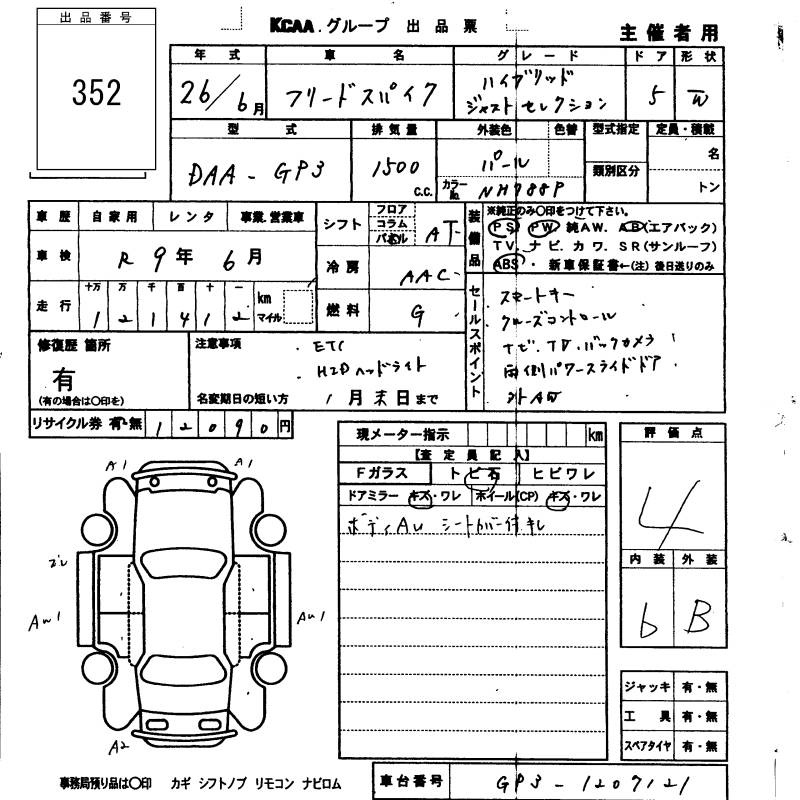 出品番号
352
KCAA.グループ 出品票
主催者用
年式 車名 グレード ドア 形状
26/6月 フリードスパイク ハイブリッド ジャストセレクション 5 W
型式 排気量 外装色 色替 型式指定 定員・積載
DAA-GP3 1500 C.C. パール 名
類別区分
カラーNo. NH788P トン
車歴 自家用 レンタ 事業.営業車
シフト フロア コラム パネル AT
車検 R9年6月
冷房 AAC
走行 十万 万 千 百 十 一 km マイル
121412
燃料 G
装備品 ※純正のみ〇印をつけて下さい。
PS PW 純AW. AB(エアバック)
TV. ナビ. カワ. SR(サンルーフ)
ABS ・ 新車保証書←(注)後日送りのみ
セールスポイント
スマートキー
クルーズコントロール
ナビ.TV.バックカメラ
両側パワースライドドア
外AW
修復歴 箇所
有
(有の場合は〇印を)
注意事項 . ETC
. HIDヘッドライト
名変期日の短い方 1月末日まで
リサイクル券 有・無 12090円
現メーター指示 km
【査定員記入】
Fガラス トビ石 ヒビワレ
ドアミラー キズ・ワレ ホイール(CP) キズ・ワレ
ボディAU シートカバー付キレ
評価点
4
内装 外装
6 B
A1 A1
AW1 AU1
A2
ジャッキ 有・無
工具 有・無
スペアタイヤ 有・無
事務局預り品は〇印 カギ シフトノブ リモコン ナビロム
車台番号 GP3-1207121